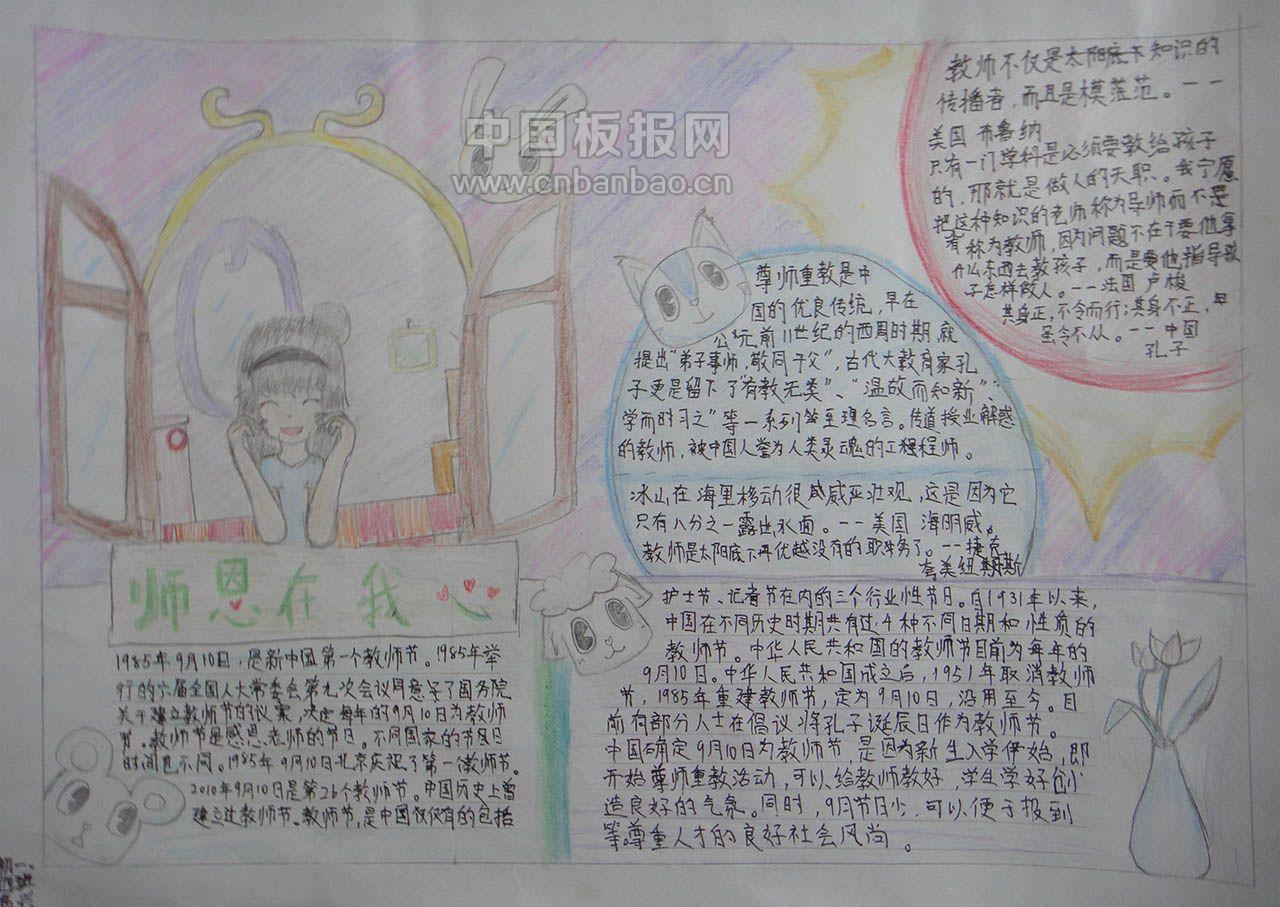 中国板报网
www.cnbanbao.cn
教师不仅是太阳底下知识的
传播者，而且是模范。——
美国 布鲁纳
只有一门学科是必须要教给孩子
的，那就是做人的天职。我宁愿
把这种知识的老师称为导师而不是
称为教师，因为问题不在于要他拿
什么东西去教孩子，而是要他指导孩
子怎样做人。——法国 卢梭
其身正，不令而行；其身不正，
虽令不从。——中国
孔子
尊师重教是中
国的优良传统，早在
公元前11世纪的西周时期，就
提出“弟子事师，敬同于父”，古代大教育家孔
子更是留下了“有教无类”、“温故而知新”、
学而时习之”等一系列至理名言。传道授业解惑
的教师，被中国人誉为人类灵魂的工程师。
冰山在海里移动很威严壮观，这是因为它
只有八分之一露出水面。——美国 海明威。
教师是太阳底下再优越没有的职务了。——捷克
夸美纽斯
师恩在我心
1985年9月10日，是新中国第一个教师节。1985年举
行的六届全国人大常委会第九次会议同意了国务院
关于建立教师节的议案，决定每年的9月10日为教师
节。教师节是感恩老师的节日。不同国家的节日
时间也不同。1985年9月10日北京庆祝了第一个教师节。
2010年9月10日是第26个教师节。中国历史上曾
建立过教师节。教师节，是中国仅仅有的包括
护士节、记者节在内的三个行业性节日。自1931年以来，
中国在不同历史时期共有过4种不同日期和性质的
教师节。中华人民共和国的教师节目前为每年的
9月10日。中华人民共和国成立之后，1951年取消教师
节，1985年重建教师节，定为9月10日，沿用至今。目
前有部分人士在倡议将孔子诞辰日作为教师节。
中国确定9月10日为教师节，是因为新生入学伊始，即
开始尊师重教活动，可以给教师教好，学生学好创
造良好的气氛。同时，9月节日少，可以便于报到
等尊重人才的良好社会风尚。